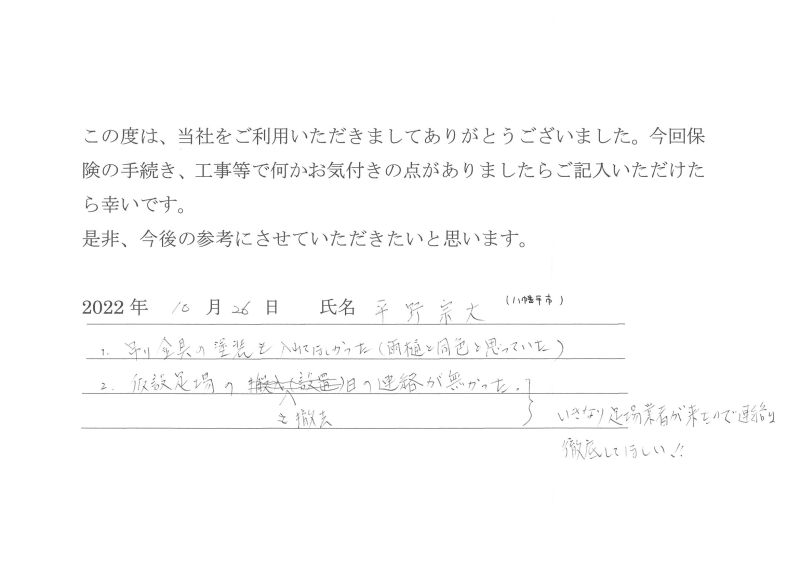 この度は、当社をご利用いただきましてありがとうございました。今回保
険の手続き、工事等で何かお気付きの点がありましたらご記入いただけた
ら幸いです。
是非、今後の参考にさせていただきたいと思います。
2022 年 10 月 26 日 氏名 平野宗大 (八幡平市)
1. 吊り金具の塗装も入れてほしかった(雨樋と同色と思っていた)
2. 仮設足場の搬入(設置)日の連絡が無かった。
と撤去
いきなり足場業者が来たので連絡は
徹底してほしい!!